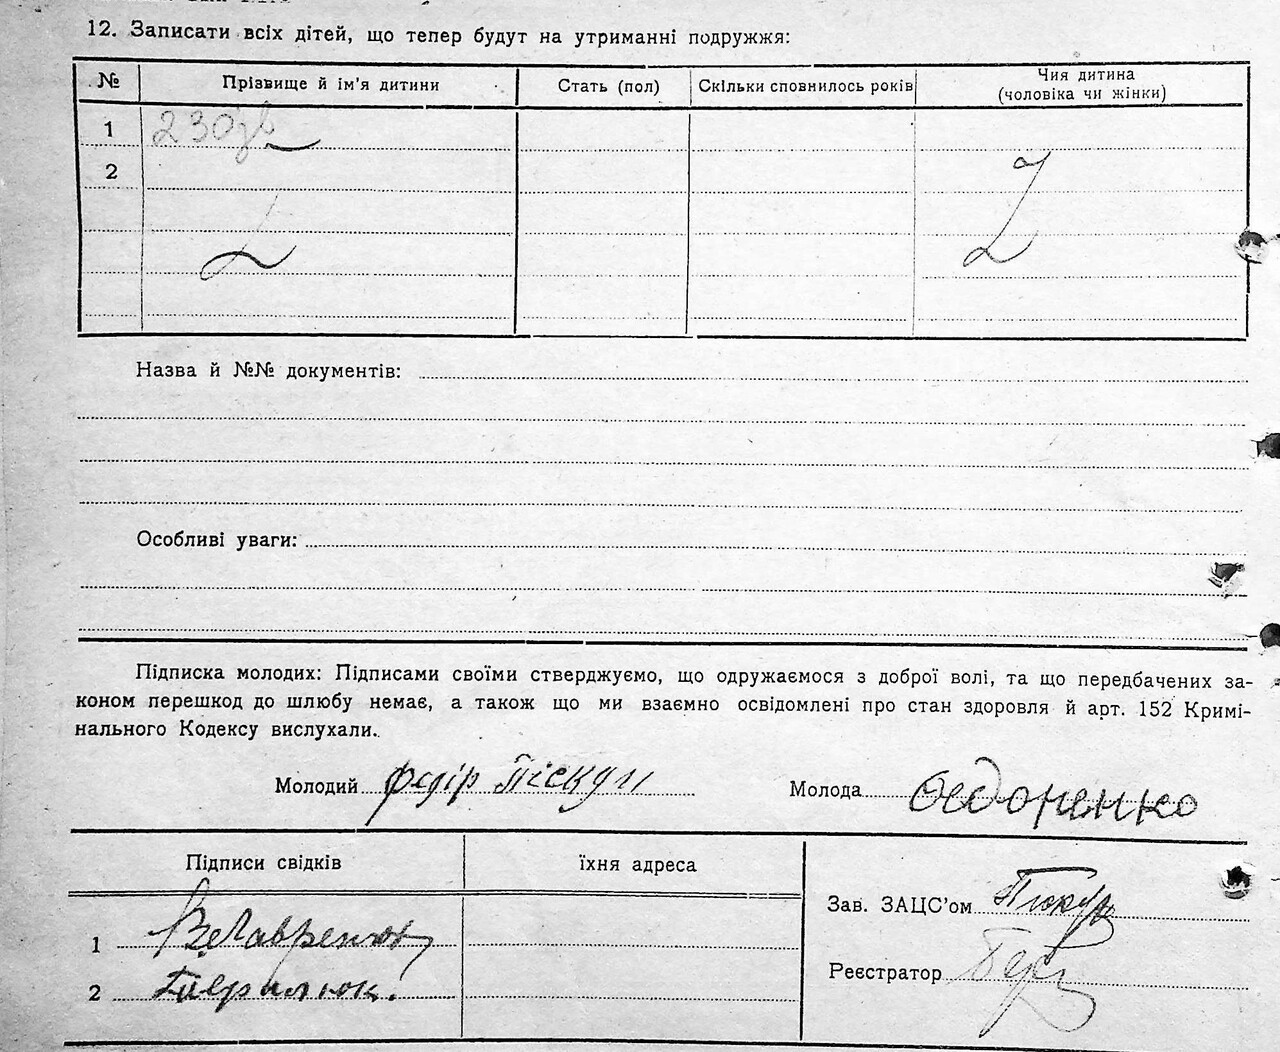 12. Записати всіх дітей, що тепер будут на утриманні подружжя:
№ Прізвище й ім'я дитини Стать (пол) Скільки сповнилось років Чия дитина
(чоловіка чи жінки)
1
2
Z Z
Назва й №№ документів:
Особливі уваги:
Підписка молодих: Підписами своїми стверджуємо, що одружаємося з доброї волі, та що передбачених за-
коном перешкод до шлюбу немає, а також що ми взаємно освідомлені про стан здоровля й арт. 152 Кримі-
нального Кодексу вислухали.
Молодий Федір Піскун Молода Федоренко
Підписи свідків їхня адреса
Зав. ЗАЦС'ом Піскун
1 В. Лавренюк
Реєстратор
2 Гаврилюк.